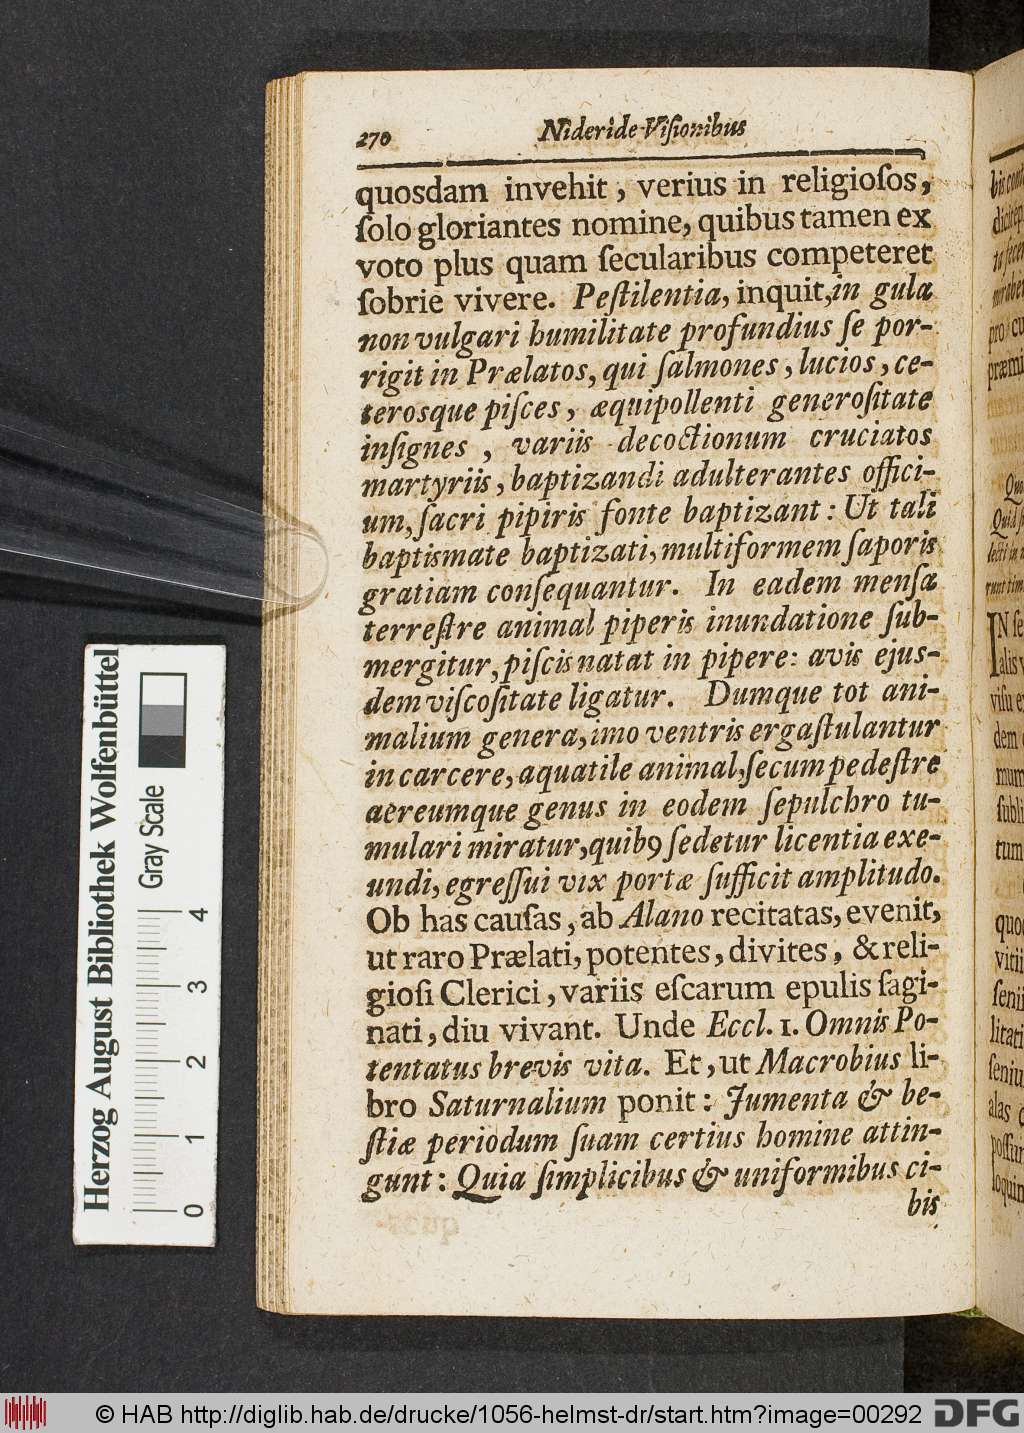 270 Nideri de Viſionibus
quosdam invehit, verius in religioſos,
ſolo gloriantes nomine, quibus tamen ex
voto plus quam ſecularibus competeret
ſobrie vivere. Peſtilentia, inquit, in gula
non vulgari humilitate profundius ſe por-
rigit in Prælatos, qui ſalmones, lucios, ce-
terosque piſces, æquipollenti generoſitate
inſignes, variis decoctionum cruciatos
martyriis, baptizandi adulterantes offici-
um, ſacri pipiris fonte baptizant: Ut tali
baptismate baptizati, multiformem ſaporis
gratiam conſequantur. In eadem menſa
terreſtre animal piperis inundatione ſub-
mergitur, piſcis natat in pipere: avis ejus-
dem viſcoſitate ligatur. Dumque tot ani-
malium genera, imo ventris ergaſtulantur
in carcere, aquatile animal, ſecum pedeſtre
aëreumque genus in eodem ſepulchro tu-
mulari miratur, quib9 ſedetur licentia exe-
undi, egreſſui vix portæ ſufficit amplitudo.
Ob has cauſas, ab Alano recitatas, evenit,
ut raro Prælati, potentes, divites, & reli-
gioſi Clerici, variis eſcarum epulis ſagi-
nati, diu vivant. Unde Eccl. 1. Omnis Po-
tentatus brevis vita. Et, ut Macrobius li-
bro Saturnalium ponit: Jumenta & be-
ſtiæ periodum ſuam certius homine attin-
gunt: Quia ſimplicibus & uniformibus ci-
bis
Herzog August Bibliothek Wolfenbüttel
Gray Scale
0 1 2 3 4
© HAB http://diglib.hab.de/drucke/1056-helmst-dr/start.htm?image=00292
DFG